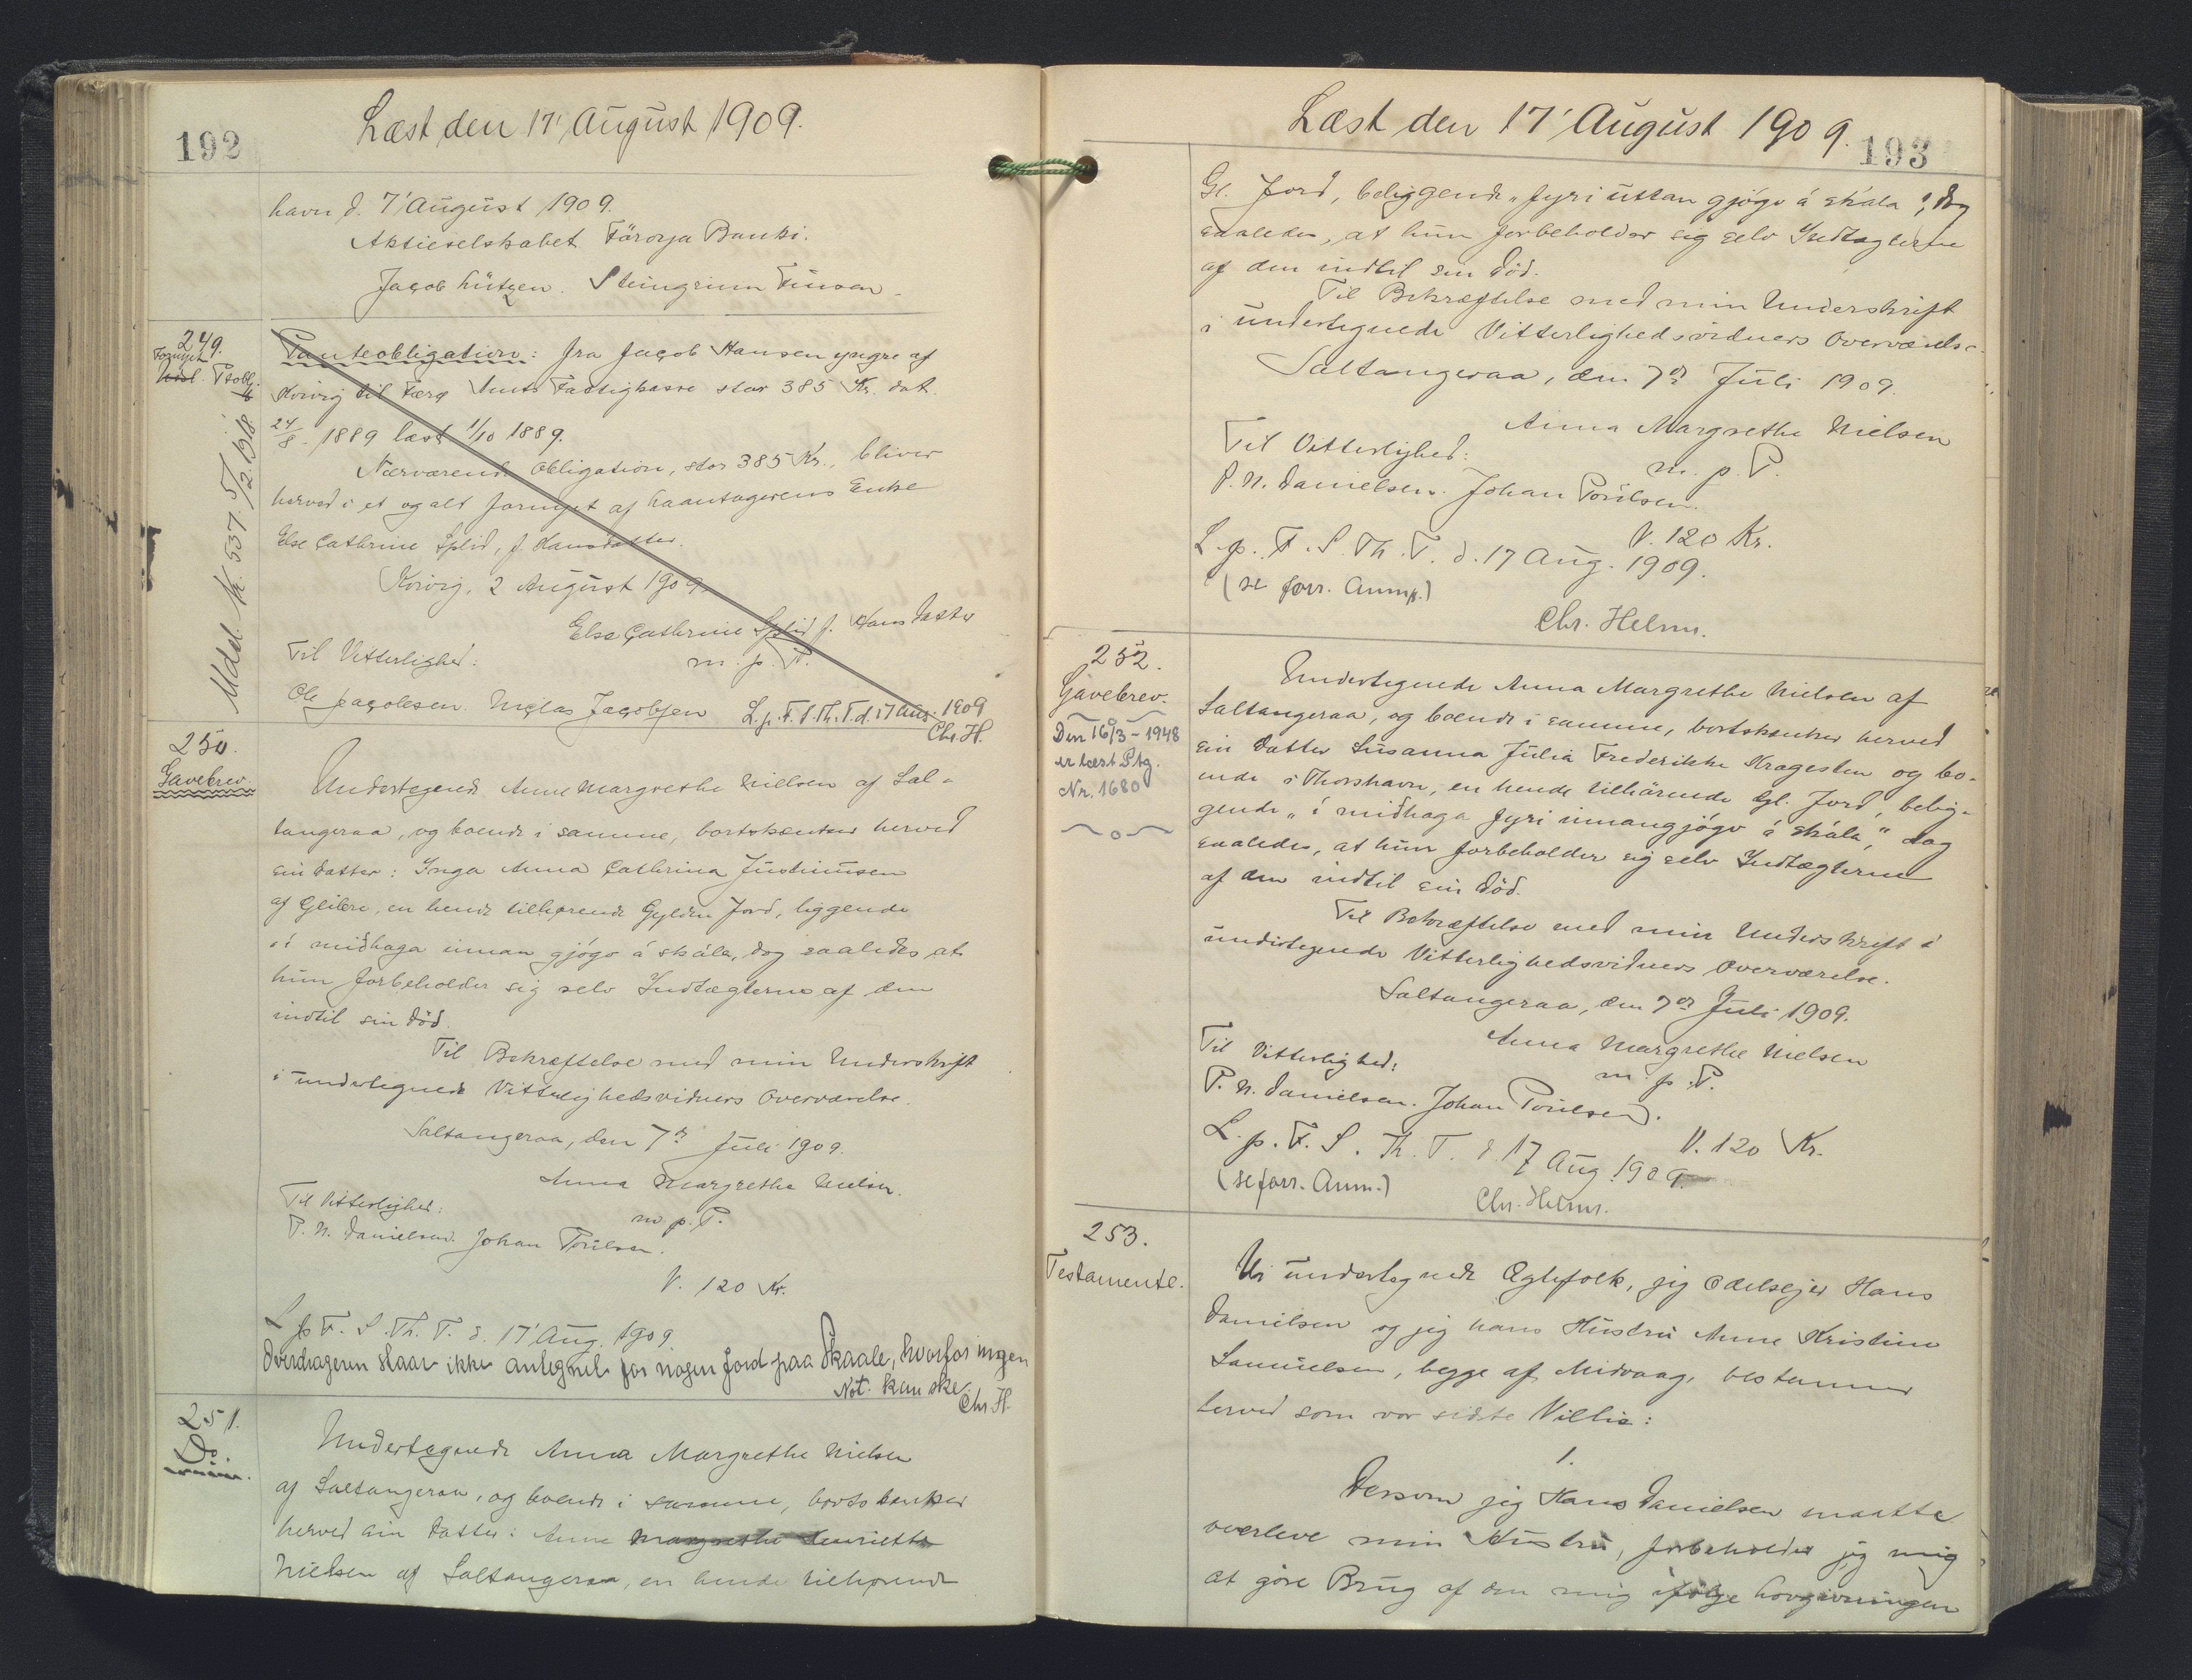 192
Læst den 17' August 1909.
havn d. 7' August 1909.
Aktieselskabet Föroya Banki.
Jacob Lützen. Steingrim Finsen
249.
Fornyet
Udsl. Ptobl.
Udsl. № 537. 5/2. 1918
Panteobligation: fra Jacob Hansen yngre af
Kvivig til Færø Amts Fattigkasse stor 385 Kr. dat.
24/8 - 1889 læst 1/10 1889.
Nærværende Obligation, stor 385 Kr., bliver
herved i et og alt fornyet af Laantagerens Enke
Else Cathrine Splid, f. Hansdatter.
Kvivig, 2 August 1909
Else Cathrine Splid f. Hansdatter
m. p. P.
Til Vitterlighed:
Ole Jacobsen. Niclas Jacobsen L. p. F. S. Th. T. d. 17 Aug. 1909
Chr. H.
250.
Gavebrev.
Undertegnede Anne Margrethe Nielsen af Sal-
tangeraa, og boende i samme, bortskænker herved
sin Datter: Inga Anna Cathrina Justinussen
af Glibre, en hende tilhørende Gylden Jord, liggende
"i miðhaga innan gjógv á skála, dog saaledes at
hun forbeholder sig selv Indtægterne af den
indtil sin Död.
Til Bekræftelse med min Underskrift
i undertegnede Vitterlighedsvidners Overværelse.
Saltangeraa, den 7de Juli 1909.
Anna Margrethe Nielsen.
m. p. P.
Til Vitterlighed:
P. N. Danielsen. Johan Poulsen.
V. 120 Kr.
L. p. F. S. Th. T. d. 17' Aug. 1909.
Overdrageren staar ikke antegnet for nogen Jord paa Skaale, hvorfor ingen
Not. kan ske.
Chr. H.
251.
Do.
Undertegnede Anna Margrethe Nielsen
af Saltangeraa, og boende i samme, bortskænker
herved sin Datter: Anne Margrethe Henriette
Nielsen af Saltangeraa, en hende tilhørende
193
Læst den 17' August 1909.
Gl. Jord, beliggende "fyri uttan gjógv á skála", dog
saaledes, at hun forbeholder sig selv Indtægterne
af den indtil sin Död.
Til Bekræftelse med min Underskrift
i undertegnede Vitterlighedsvidners Overværelse.
Saltangeraa, den 7de Juli 1909.
Anna Margrethe Nielsen
m. p. P.
Til Vitterlighed:
P. N. Danielsen. Johan Poulsen.
V. 120 Kr.
L. p. F. S. Th. T. d. 17 Aug. 1909.
(se forr. Anmk.)
Chr. Helms.
252.
Gavebrev.
Den 16/3 - 1948
er læst Ptg.
Nr. 1680
Undertegnede Anna Margrethe Nielsen af
Saltangeraa, og boende i samme, bortskænker herved
sin Datter Susanna Julia Frederikke Kragesten og bo-
ende i Thorshavn, en hende tilhörende Gl. Jord, belig-
gende "i miðhaga fyri innangjógv á skála", dog
saaledes, at hun forbeholder sig selv Indtægterne
af den indtil sin Död.
Til Bekræftelse med min Underskrift i
undertegnede Vitterlighedsvidners Overværelse.
Saltangeraa, den 7de Juli 1909.
Anna Margrethe Nielsen
m. p. P.
Til Vitterlighed:
P. N. Danielsen. Johan Poulsen.
V. 120 Kr.
L. p. F. S. Th. T. d. 17 Aug. 1909.
(se forr. Anm.)
Chr. Helms.
253.
Testamente.
Vi undertegnede Ægtefolk, jeg Odelsejer Hans
Danielsen og jeg hans Hustru Anne Kristine
Samuelsen, begge af Midvaag, bestemmer
herved som vor sidste Villie:
1.
Dersom jeg Hans Danielsen maatte
overleve min Hustru, forbeholder jeg mig
at gøre Brug af den mig ifølge Lovgivningen